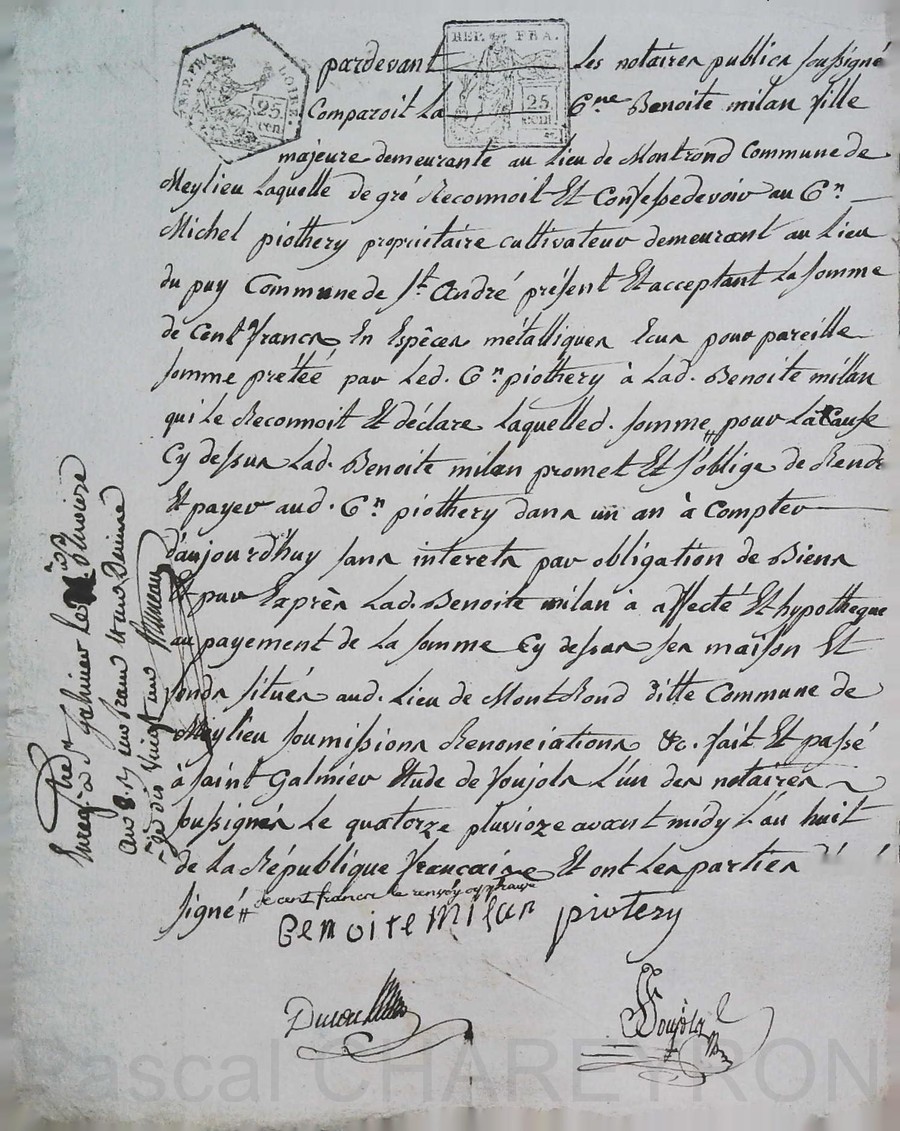 REP. FRA. LOIRE.
25.
cen
REP. FRA.
25.
CENT
pardevant Les notaires publics soussigné
Comparoit La C.ne Benoite milan fille
majeure demeurante au Lieu de Montrond Commune de
Meylieu Laquelle de gré Reconnoit Et Confesse devoir au C.n
Michel piothery propriétaire cultivateur demeurant au Lieu
du puy Commune de St. André présent Et acceptant La somme
de Cent francs En Espêces métalliques Ecus pour pareille
somme prétéé par Led. C.n piothery à Lad. Benoite milan
qui Le Reconnoit Et déclare Laquelled. somme # pour La Cause
Cy dessus Lad. Benoite milan promet Et s'oblige de Rendre
Et payer aud. C.n piothery dans un an à Compter
d'aujourd'huy sans interets par obligation de Biens
Et par Exprès Lad. Benoite milan à affecté Et hypotheque
au payement de La somme Cy dessus ses maison Et
fonds situés aud. Lieu de MontRond ditte Commune de
Meylieu soumissions Renonciations &c. fait Et passé
à saint Galmier Etude de Foujols L'un des notaires
soussignés Le quatorze pluvioze avant midy L'an huit
de La République françaine Et ont Les parties
signé # de cent francs le renvoy approuvé
Benoite Milan piotery
Foujols
Enreg. à St. Galmier Le pluviose
an 8. Reçu un franc
dix Vingt cinq
Pascal CHAREYRON